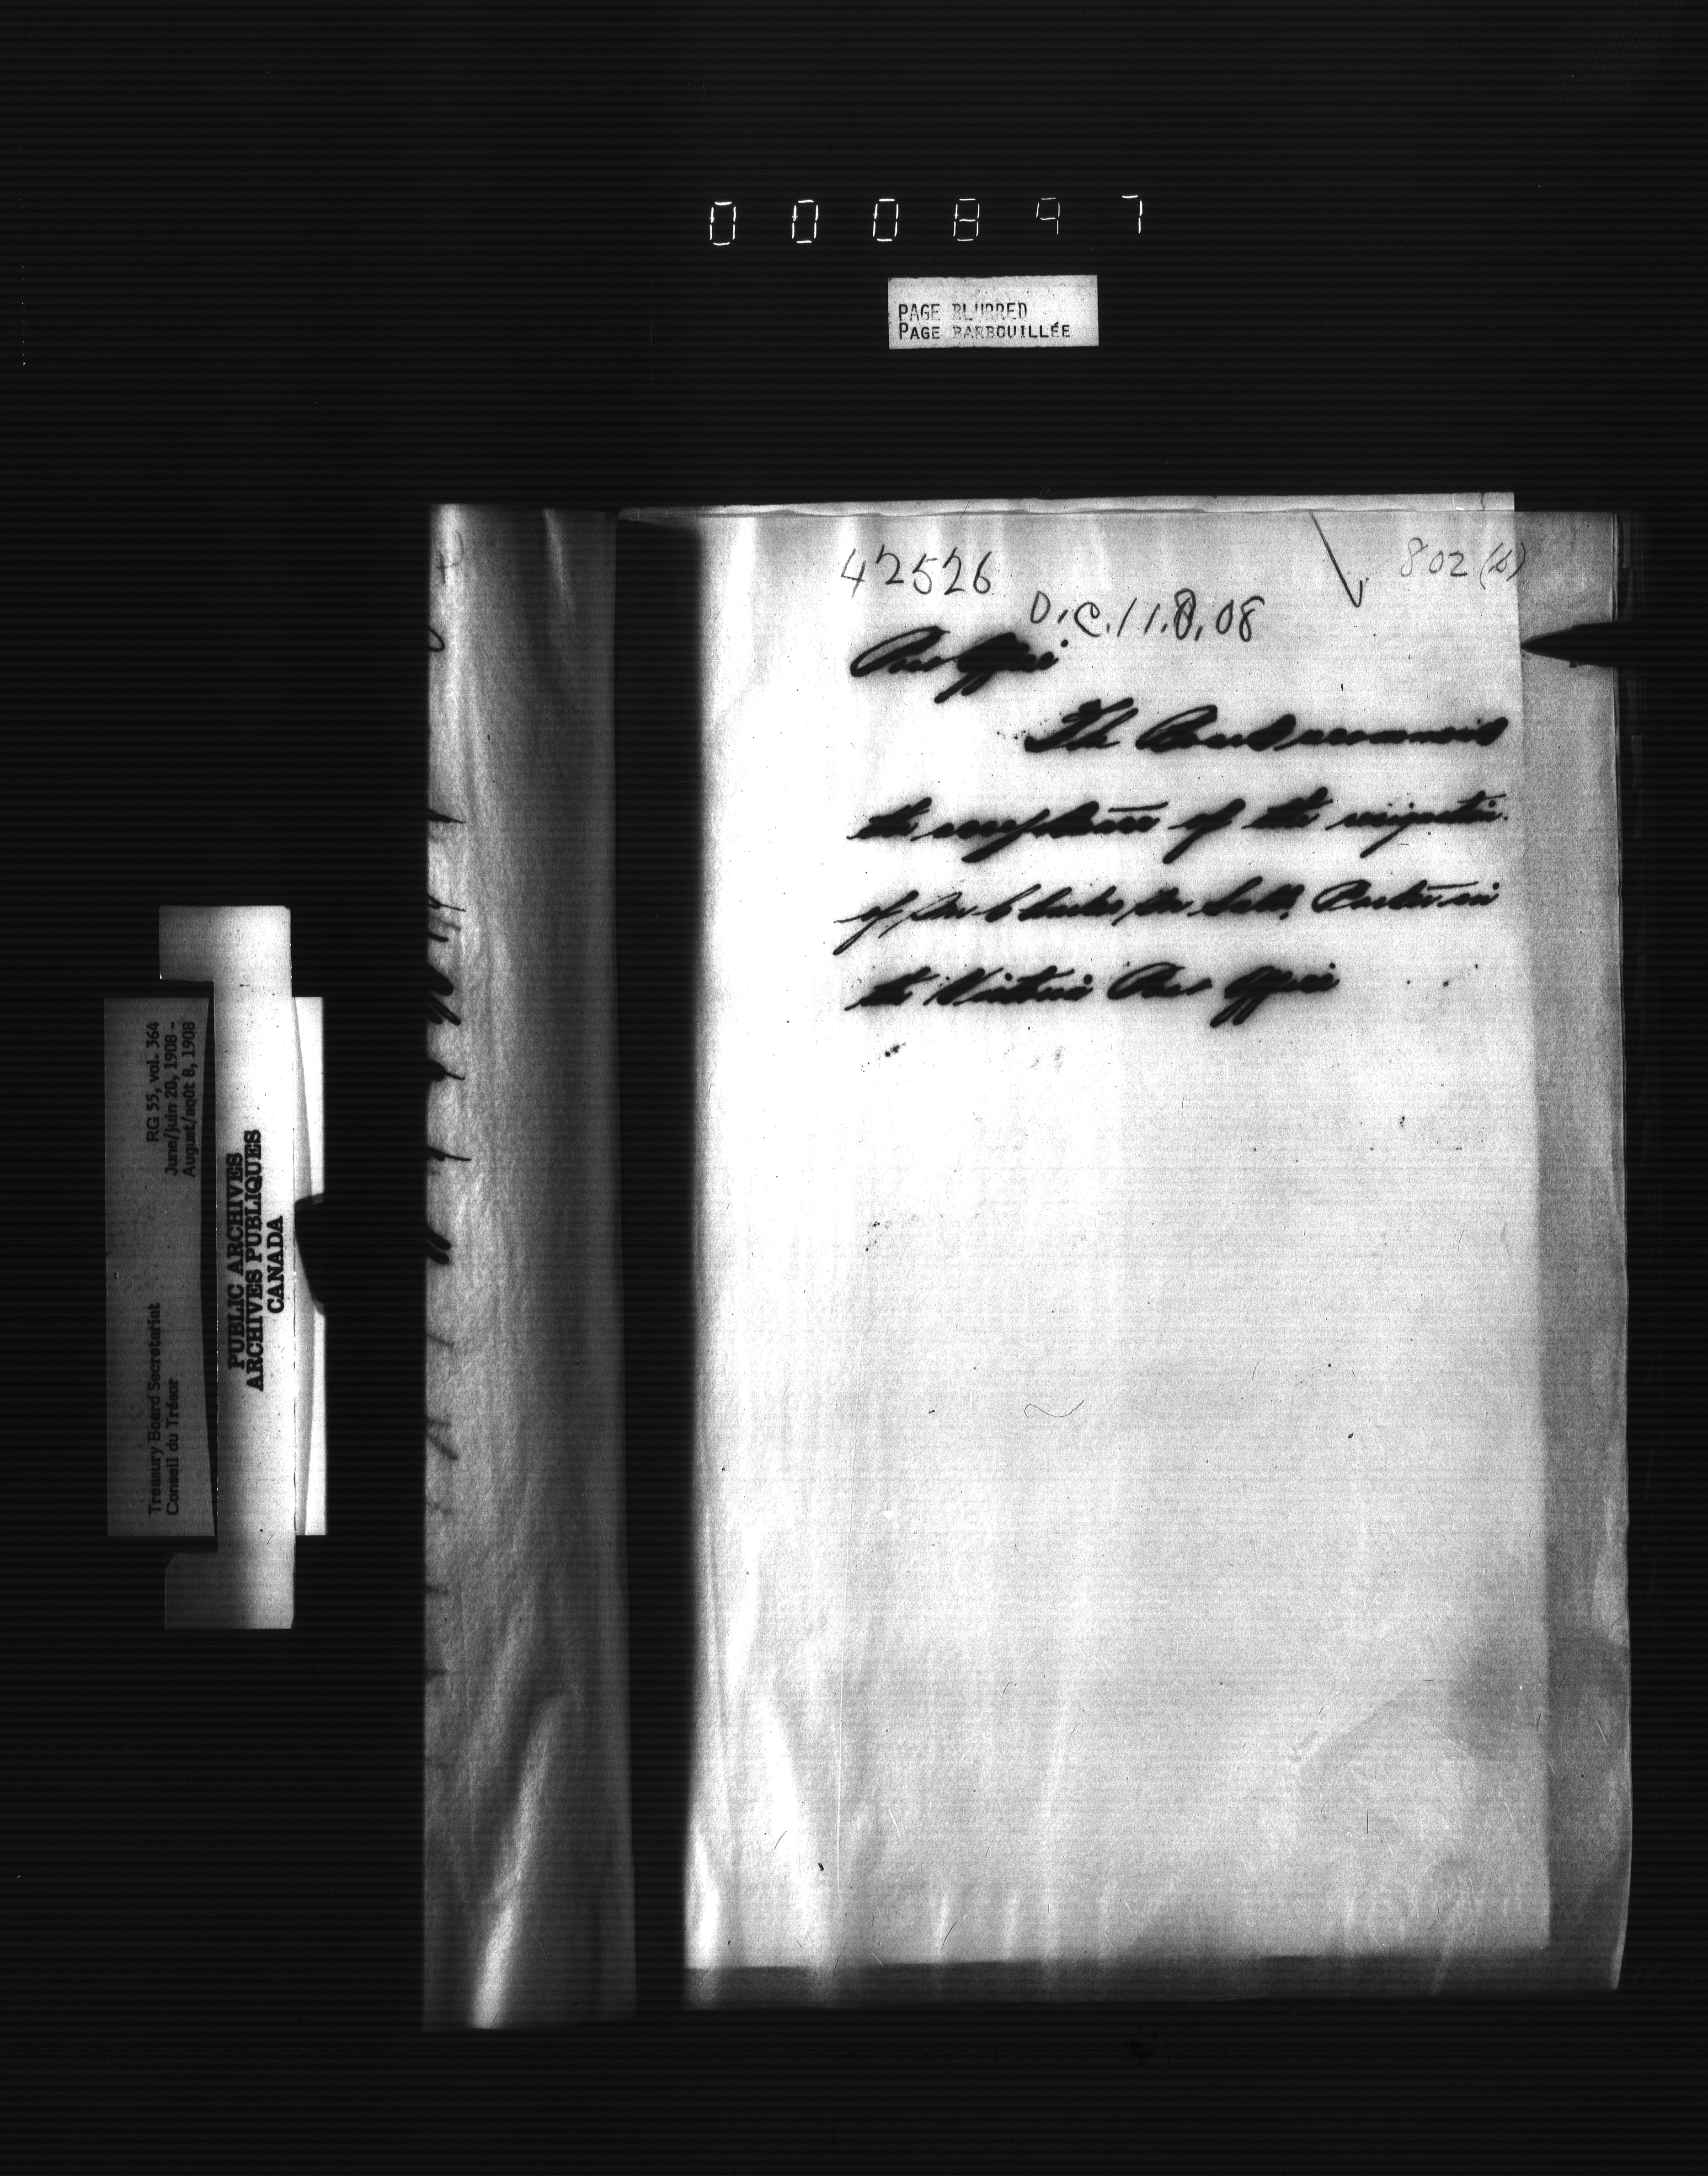 000897
PAGE BLURRED
PAGE BARBOUILLÉE
42526
802 (b)
O.C. 11.8.08
Post Office
The Board recommend
the acceptance of the resignation
of Porter in
the Victoria Post Office
Treasury Board Secretariat RG 55, vol. 364
Conseil du Trésor June/juin 20, 1908 -
August/août 8, 1908
PUBLIC ARCHIVES
ARCHIVES PUBLIQUES
CANADA